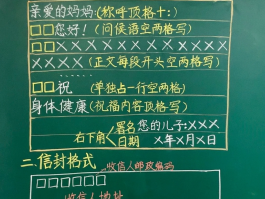 亲爱的妈妈:(称呼顶格十:)
□□您好!(问候语空两格写)
□□××××××××××××
××××(正文每段开头空两格写)
□□祝(单独占一行空两格)
身体健康(祝福内容顶格写)
右下角 署名 您的儿子:×××
日期 ×年×月×日
二.信封格式
收信人邮政编码
□□□□□□
收信人地址